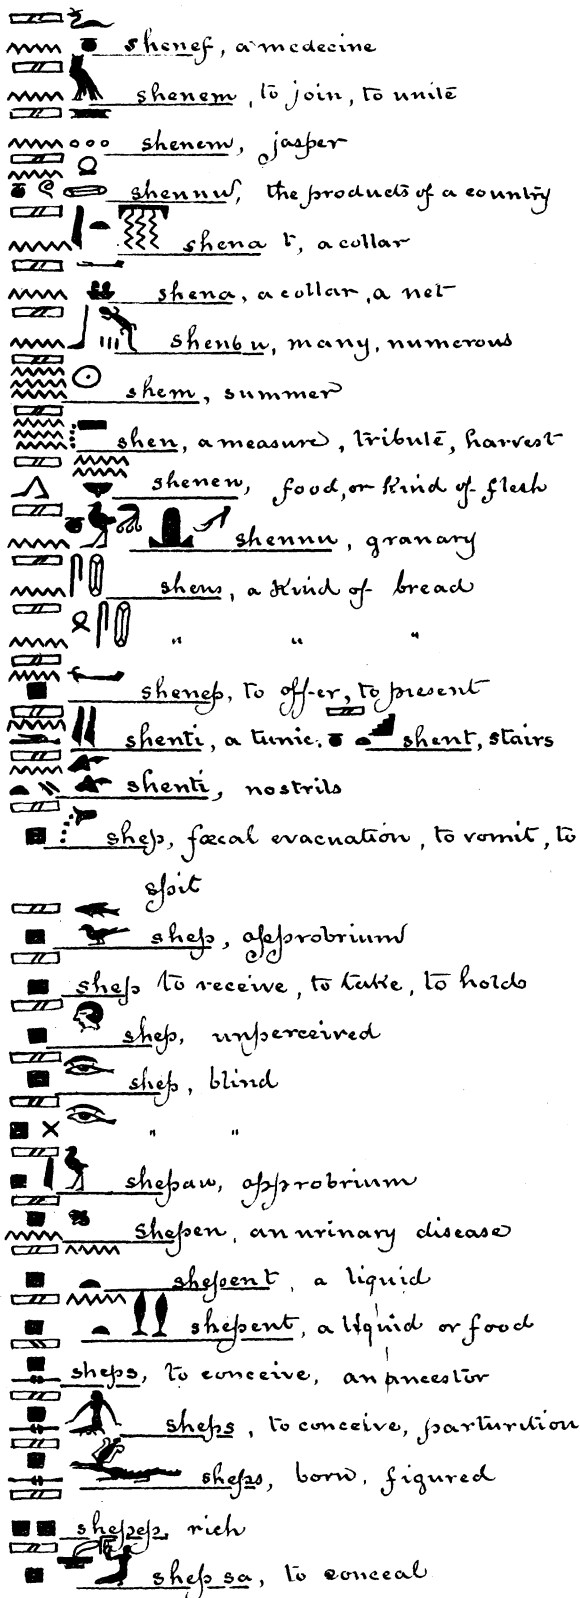 shenef, a medecine
shenem, to join, to unite
shenem, jasper
shennu, the products of a country
shena t, a collar
shena, a collar, a net
shenbu, many, numerous
shem, summer
shen, a measure, tribute, harvest
shenen, food, or kind of flesh
shennu, granary
shens, a kind of bread
" " "
shenep, to offer, to present
shenti, a tunic. shent, stairs
shenti, nostrils
shep, fœcal evacuation, to vomit, to
spit
shep, opprobrium
shep to receive, to take, to hold
shep, unperceived
shep, blind
" "
shepau, opprobrium
shepen, an urinary disease
shepent, a liquid
shepent, a liquid or food
sheps, to conceive, an ancestor
sheps, to conceive, parturition
sheps, born, figured
shepep, rich
shep sa, to conceal